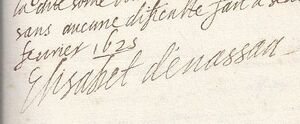 la dite some
sans aucune dificulte fait a
feurier 1625
Elisabet de nassau